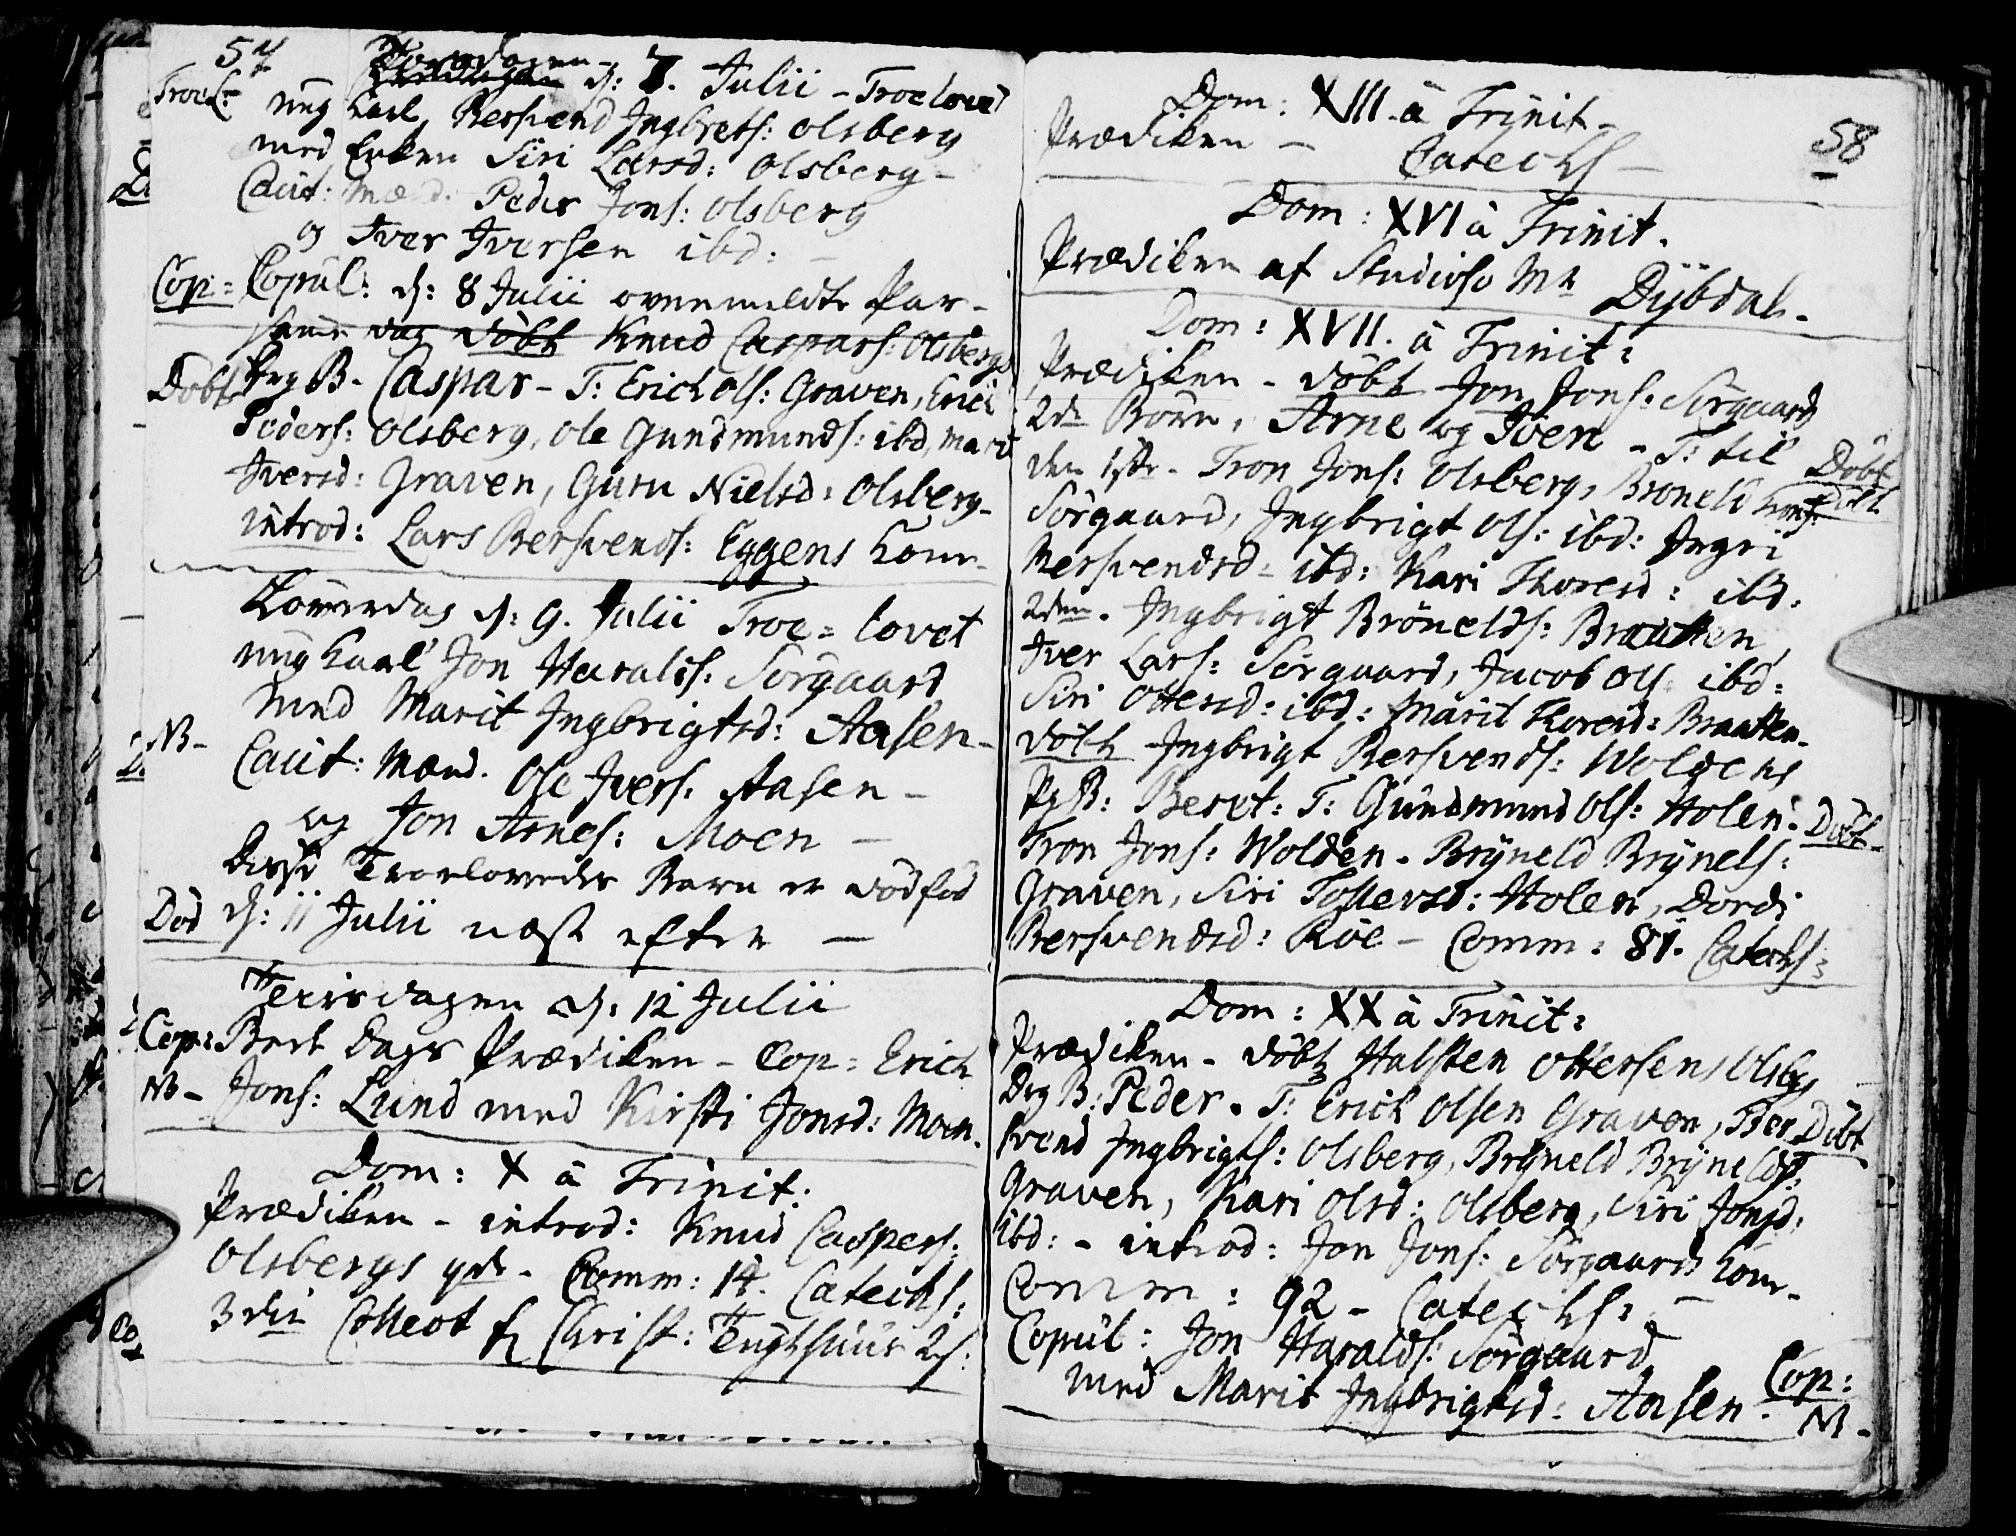 57
Torsdagen d: 7. Julii - Troelovet
Troel: ung Karl Bersvend Ingbrets: Olsberg
med Enken Siri Larsd: Olsberg -
Caut: Mænd. Peder Jons: Olsberg
og Iver Iversen ibd: -
Cop: Copul: d: 8 Julii ovenmeldte Par -
samme dag döbt Knud Caspars: Olsbergs
Döbt Drg B. Caspar - T: Erich Ols: Graven, Erich
Peders: Olsberg, Ole Gundmunds: ibd, Mari
Iversd: Graven, Guru Nielsd: Olsberg -
introd: Lars Bersvends: Eggens Kone -
Löverdag d: 9. Julii Troe = lovet
ung Karl Jon Haralds: Sörgaard
NB - med Marit Ingbrigtsd: Aasen -
Caut: Mænd. Ole Ivers: Aasen -
og Jon Arnes: Moen -
Disse Troelovedes Barn er dödfød
Död d: 11 Julii næst efter -
Tiirsdagen d: 12 Julii
Cop: Beed Dags Prædiken - Cop: Erich
NB - Jons: Lund med Kirsti Jonsd: Moen.
Dom: X à Trinit:
Prædiken - introd: Knud Caspers:
Olsbergs qvde - Comm: 14. Catechs:
3die Collect f Christ: Tugthuus
58
Dom: XIII. à Trinit -
Prædiken - Catechs -
Dom: XVI à Trinit.
Prædiken af Studioso Mr Dÿbdal -
Dom: XVII. à Trinit:
Prædiken - döbt Jon Jons: Sörgaards
2de Börn, Arne og Iven - T: til Döbt
den 1ste - Tron Jons: Olsberg, Broneld Döbt
Sörgaard, Ingbrigt Ols: ibd: Ingri
Bersvendsd - ibd: Kari Thoresd: ibd:
2den - Ingbrigt Brönelds: Braatten,
Iver Lars: Sörgaard, Jacob Ols: ibd:
Siri Ottersd: ibd: Marit Thoresd: Braatten -
döbt Ingbrigt Bersvends: Woldens
Pg B: Beret: T: Gundmund Ols: Holen - Döbt -
Tron Jons: Wolden - Brÿneld Brÿnels:
Graven, Siri Tollevsd: Holen, Dordi
Bersvendsd: Röe - Comm: 81. Catechs:
Dom: XX à Trinit:
Prædiken - döbt Halsten Ottersens Olsbgs
Drg B: Peder. T: Erich Olsen Graven, Ber Döbt
svend Ingbrigts: Olsberg, Brÿneld Brÿnelds:
Graven, Kari Olsd: Olsberg, Siri Jonsd:
ibd: - introd: Jon Jons: Sörgaards Kone -
Comm: 92 - Catechs: -
Copul: Jon Haralds: Sörgaard
med Marit Ingbrigtsd: Aasen - Cop:
NB -